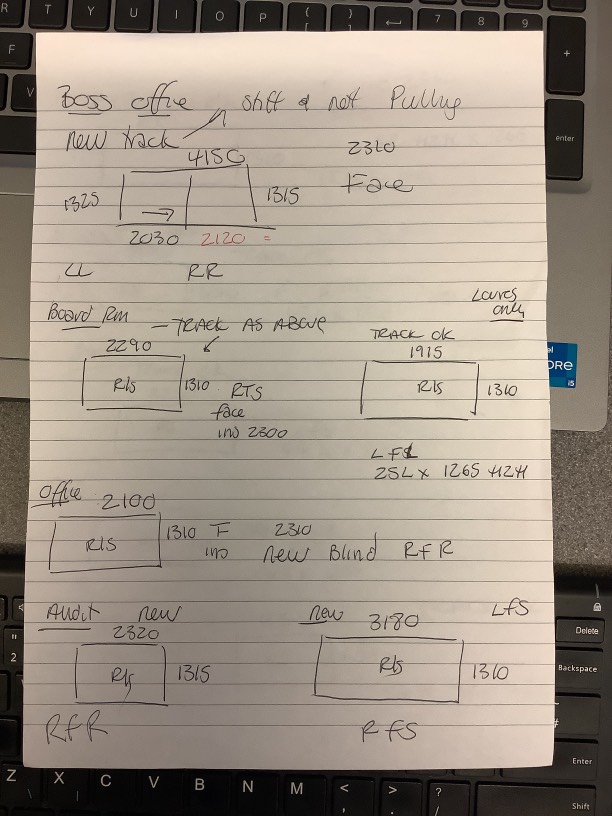 Boss office shift & not Pulling
new track 2310
4150 Face
1325 1315
2030 2120 =
LL RR
Louvres only
Board Rm - TRACK AS ABOVE TRACK OK
2290 1915
R/S 1310 RTS R/S 1310
face
ins 2300
LFS
25L x 1265 H2H
Office 2100
R/S 1310 F 2310
ins new Blind RFR
Audit new new 3180 LFS
2320
R/S 1315 R/S 1310
RFR RFS
R T Y U I O P { [ } ] 7 8 9
F +
V
enter
intel
CORE
i5
Delete
" 2 Backspace
Enter
Z X C V B N M < , > . ? / Shift